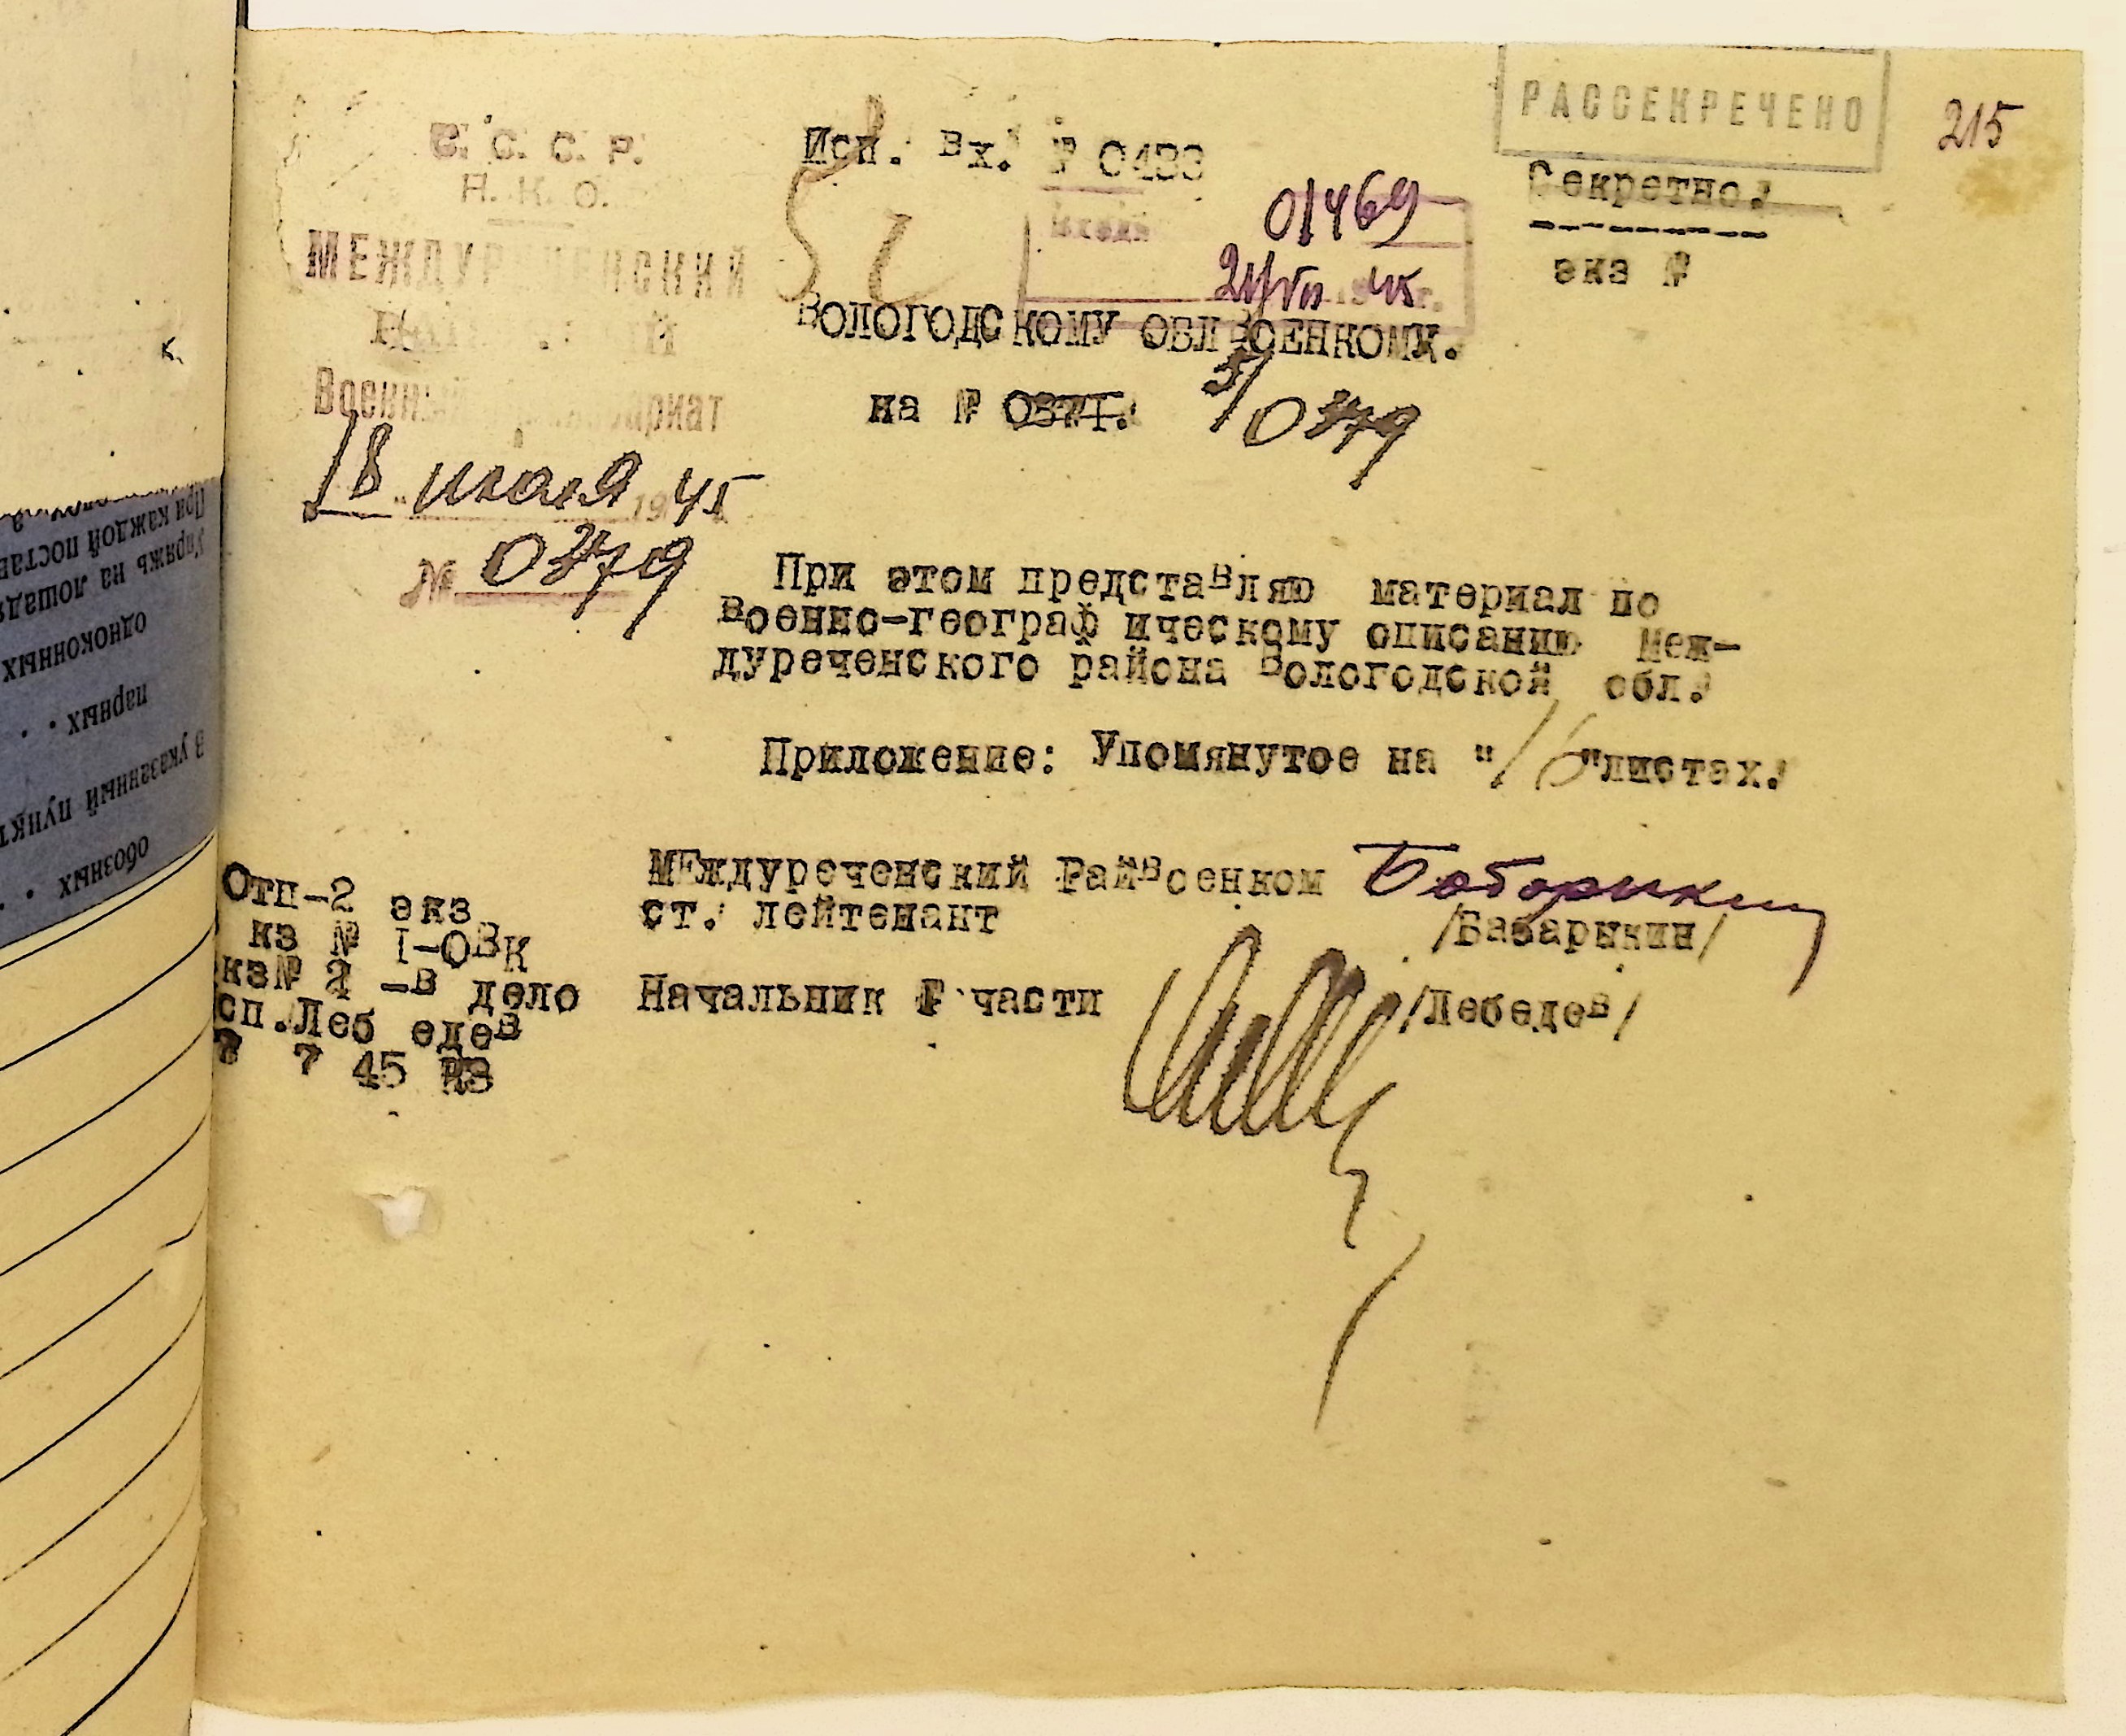 РАССЕКРЕЧЕНО
215
Секретно.
экз №
С. С. С. Р.
Н. К. О.
МЕЖДУРЕЧЕНСКИЙ
Военный комиссариат
18 июля 1945
№ 0379
Исп. Вх. № 0433
01469
21/VII 1945 г.
ВОЛОГОДСКОМУ ОБЛВОЕНКОМУ.
на № 0371. 3/0379
При этом представляю материал по
Военно-географ ическому описанию Меж-
дуреченского района Вологодской обл.
Приложение: Упомянутое на "16"листах.
МЕждуреченский РайВоенком Бабарыкин
ст. лейтенант /Бабарыкин/
Начальник I части /Лебедев/
Отп-2 экз
кз № I-ОВК
кз№ 2 -в дело
сп.Леб едев
7 45
При каждой постав
Упряжь на лошадя
одноконных
парных . .
В указанный пункт
обозных . .